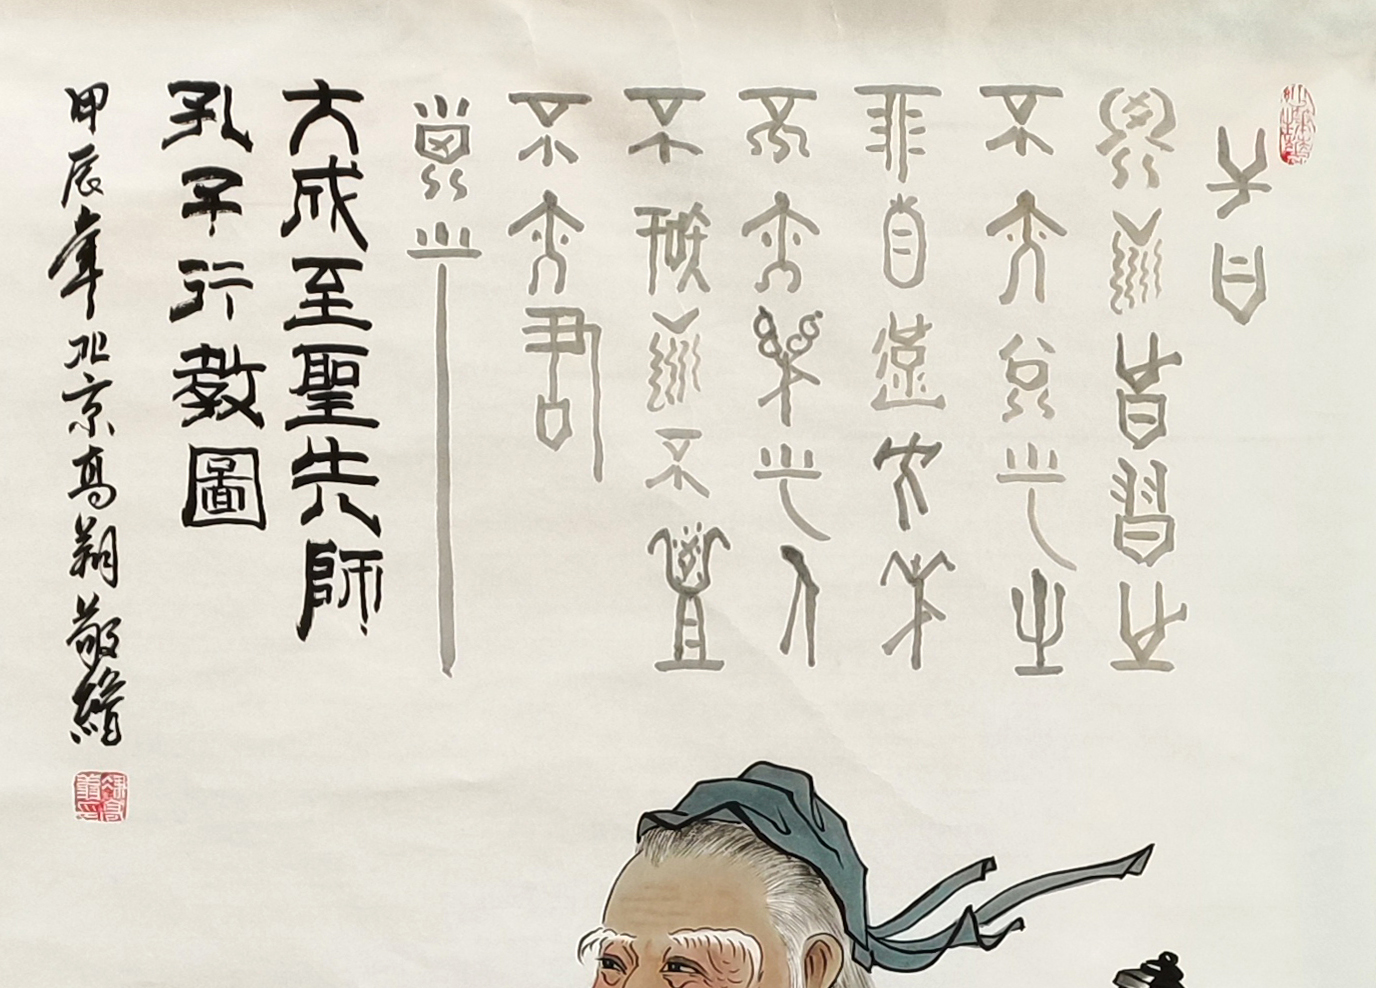 子曰
學而時習之
不亦說乎有
朋自遠方來
不亦樂乎人
不知而不慍
不亦君
子乎
大成至聖先師
孔子行教圖
甲辰年北京高翔敬繪